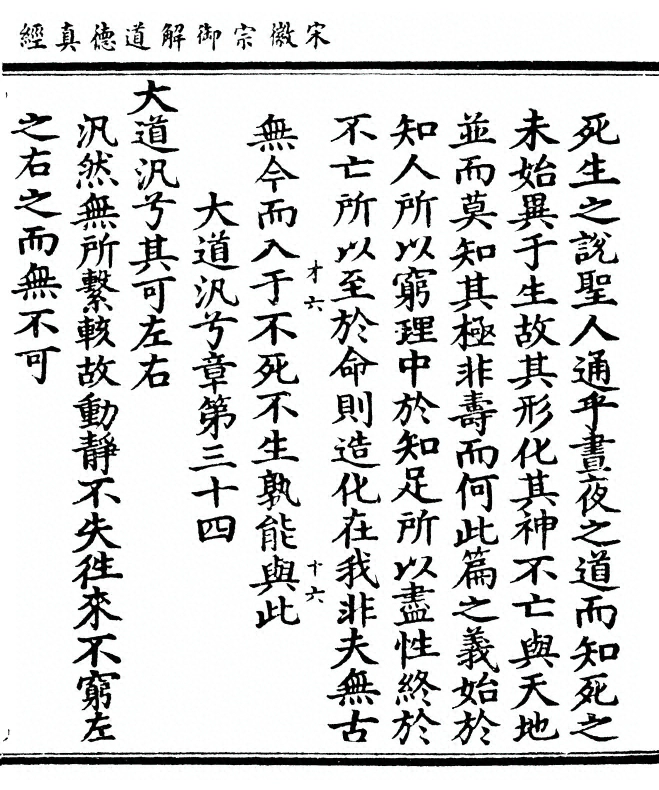 宋徽宗御解道德真經
死生之說聖人通乎晝夜之道而知死之
未始異于生故其形化其神不亡與天地
並而莫知其極非壽而何此篇之義始於
知人所以窮理中於知足所以盡性終於
不亡所以至於命則造化在我非夫無古
才六 十六
無今而入于不死不生孰能與此
大道汎兮章第三十四
大道汎兮其可左右
汎然無所繫輆故動靜不失徃來不窮左
之右之而無不可